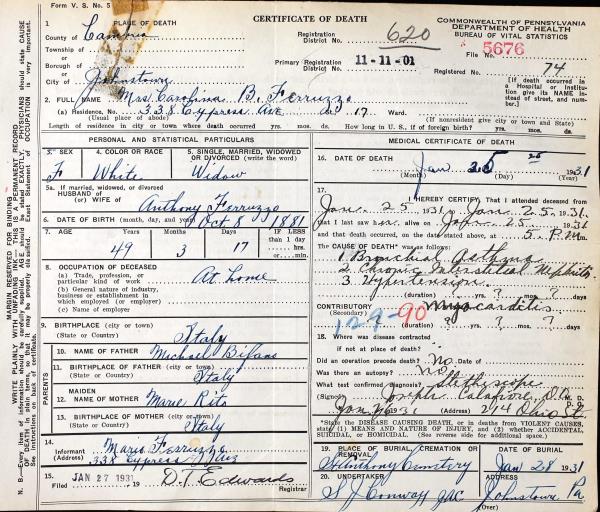 Form V. S. No. 5
CERTIFICATE OF DEATH
COMMONWEALTH OF PENNSYLVANIA
DEPARTMENT OF HEALTH
BUREAU OF VITAL STATISTICS
1 PLACE OF DEATH
County of Cambria
Registration District No. 620
File No. 5676
Township of
or
Borough of
or
City of Johnstown
Primary Registration District No. 11-11-01
Registered No. 74
[If death occurred in a Hospital or Institution give its NAME instead of street, and number.]
2. FULL NAME Mrs Carolina B. Ferruzzo
(a) Residence, No. 338 Cypress Ave St., 17 Ward.
(Usual place of abode) (If nonresident give city or town and State)
Length of residence in city or town where death occurred yrs. mos. ds. How long in U. S., if of foreign birth? yrs. mos. ds.
PERSONAL AND STATISTICAL PARTICULARS
3. SEX F
4. COLOR OR RACE White
5. SINGLE, MARRIED, WIDOWED OR DIVORCED (write the word) Widow
5a. If married, widowed, or divorced
HUSBAND of
(or) WIFE of Anthony Ferruzzo
6. DATE OF BIRTH (month, day, and year) Oct 8 1881
7. AGE Years 49 Months 3 Days 17 IF LESS than 1 day, hrs. or min.
8. OCCUPATION OF DECEASED
(a) Trade, profession, or particular kind of work At home
(b) General nature of industry, business or establishment in which employed (or employer)
(c) Name of employer
9. BIRTHPLACE (city or town)
(State or Country) Italy
PARENTS
10. NAME OF FATHER Michael Bifano
11. BIRTHPLACE OF FATHER (city or town)
(State or Country) Italy
12. MAIDEN NAME OF MOTHER Marie Rito
13. BIRTHPLACE OF MOTHER (city or town)
(State or Country) Italy
14. Informant Marie Ferruzzo
(Address) 338 Cypress Ave
15. Filed JAN 27 1931 19 D. T. Edwards
Registrar
MEDICAL CERTIFICATE OF DEATH
16. DATE OF DEATH Jan 25 1931
(Month) (Day) (Year)
17. I HEREBY CERTIFY, That I attended deceased from
Jan. 25 1931, to Jan. 25, 1931.
that I last saw h alive on Jan 25 1931
and that death occurred, on the date stated above, at 5 P. M m.
The CAUSE OF DEATH* was follows:
1 Bronchial Asthma
2 Chronic Interstitial Nephritis
3 Hypertension
(duration) ? yrs. ? mos. ? days
CONTRIBUTORY Myocarditis
(Secondary)
129-90
(duration) ? yrs. ? mos. ? days
18. Where was disease contracted
if not at place of death?
Did an operation precede death? No Date of
Was there an autopsy? No
What test confirmed diagnosis? Stethoscope
(Signed) Joseph Calafiore, D.O. M. D.
Jan 26 1931 (Address) 214 Ohio St.
*State the DISEASE CAUSING DEATH, or in deaths from VIOLENT CAUSES, state (1) MEANS AND NATURE OF INJURY, and (2) whether ACCIDENTAL, SUICIDAL, or HOMICIDAL. (See reverse side for additional space.)
19. PLACE OF BURIAL, CREMATION OR REMOVAL St Anthony Cemetery
DATE OF BURIAL Jan 28 1931
20. UNDERTAKER S J Conway
ADDRESS Johnstown Pa
(Over)
MARGIN RESERVED FOR BINDING
WRITE PLAINLY WITH UNFADING INK—THIS IS A PERMANENT RECORD